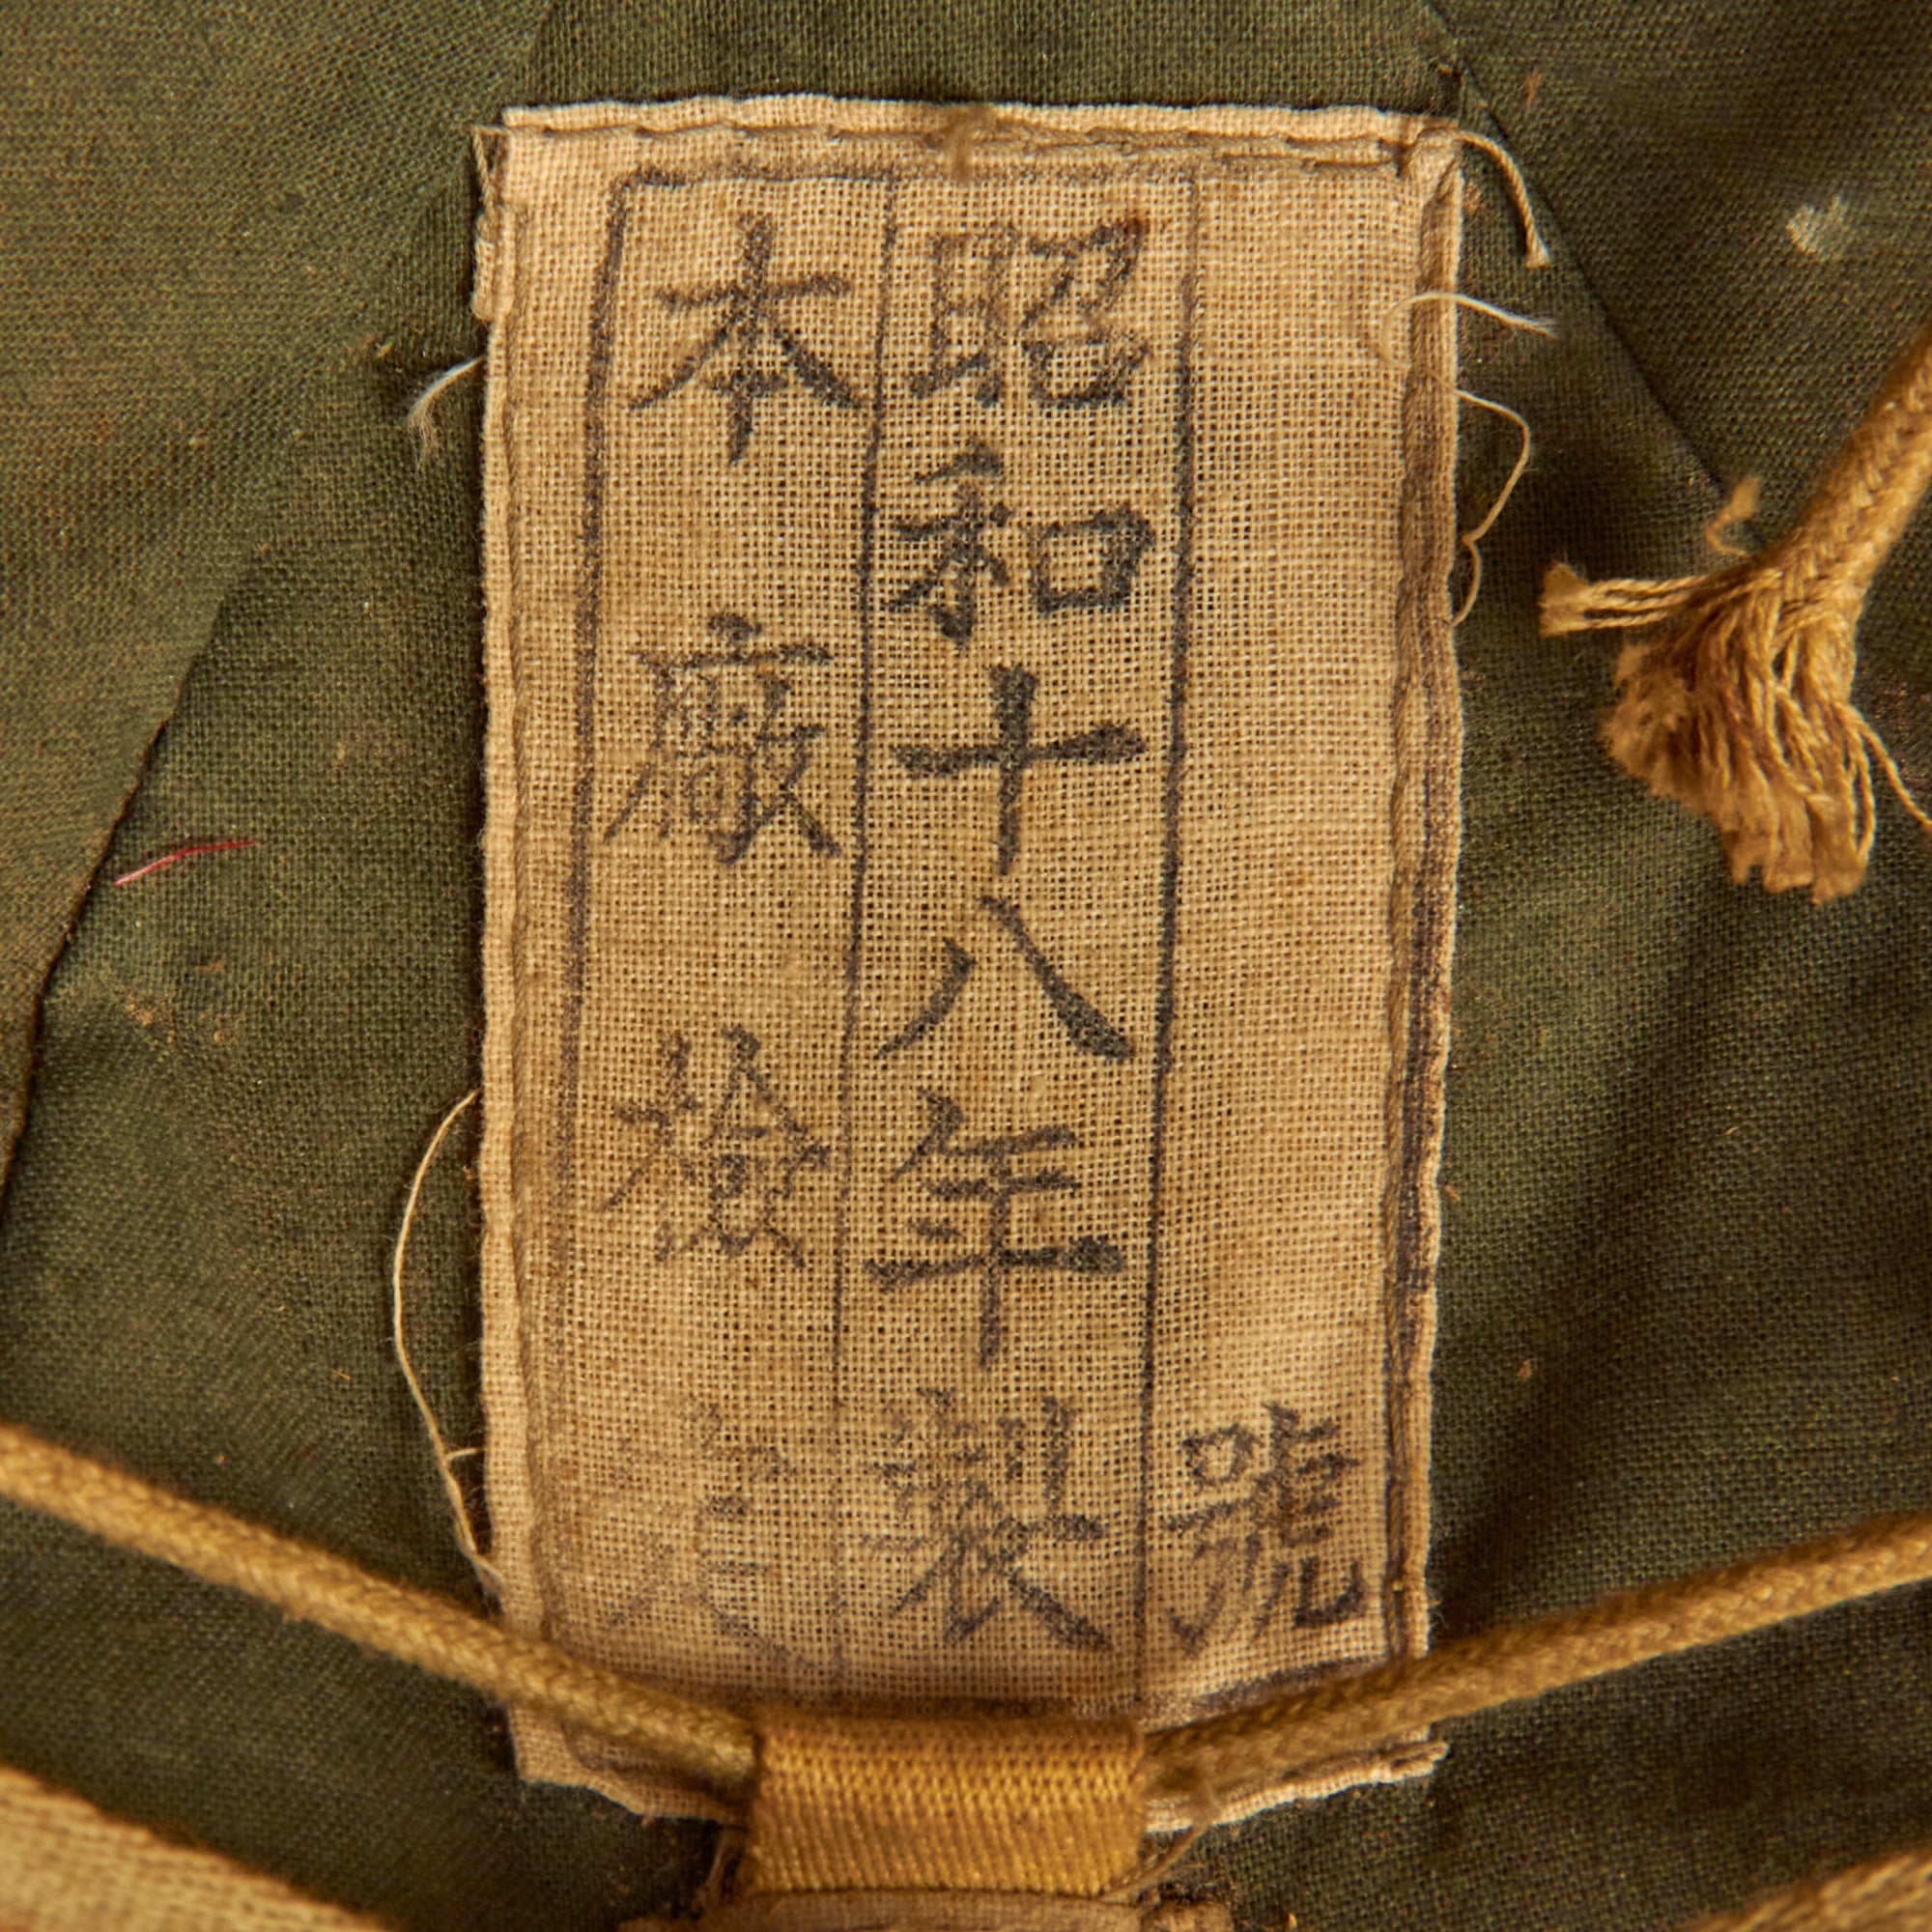 號
昭和十八年製
本廠檢